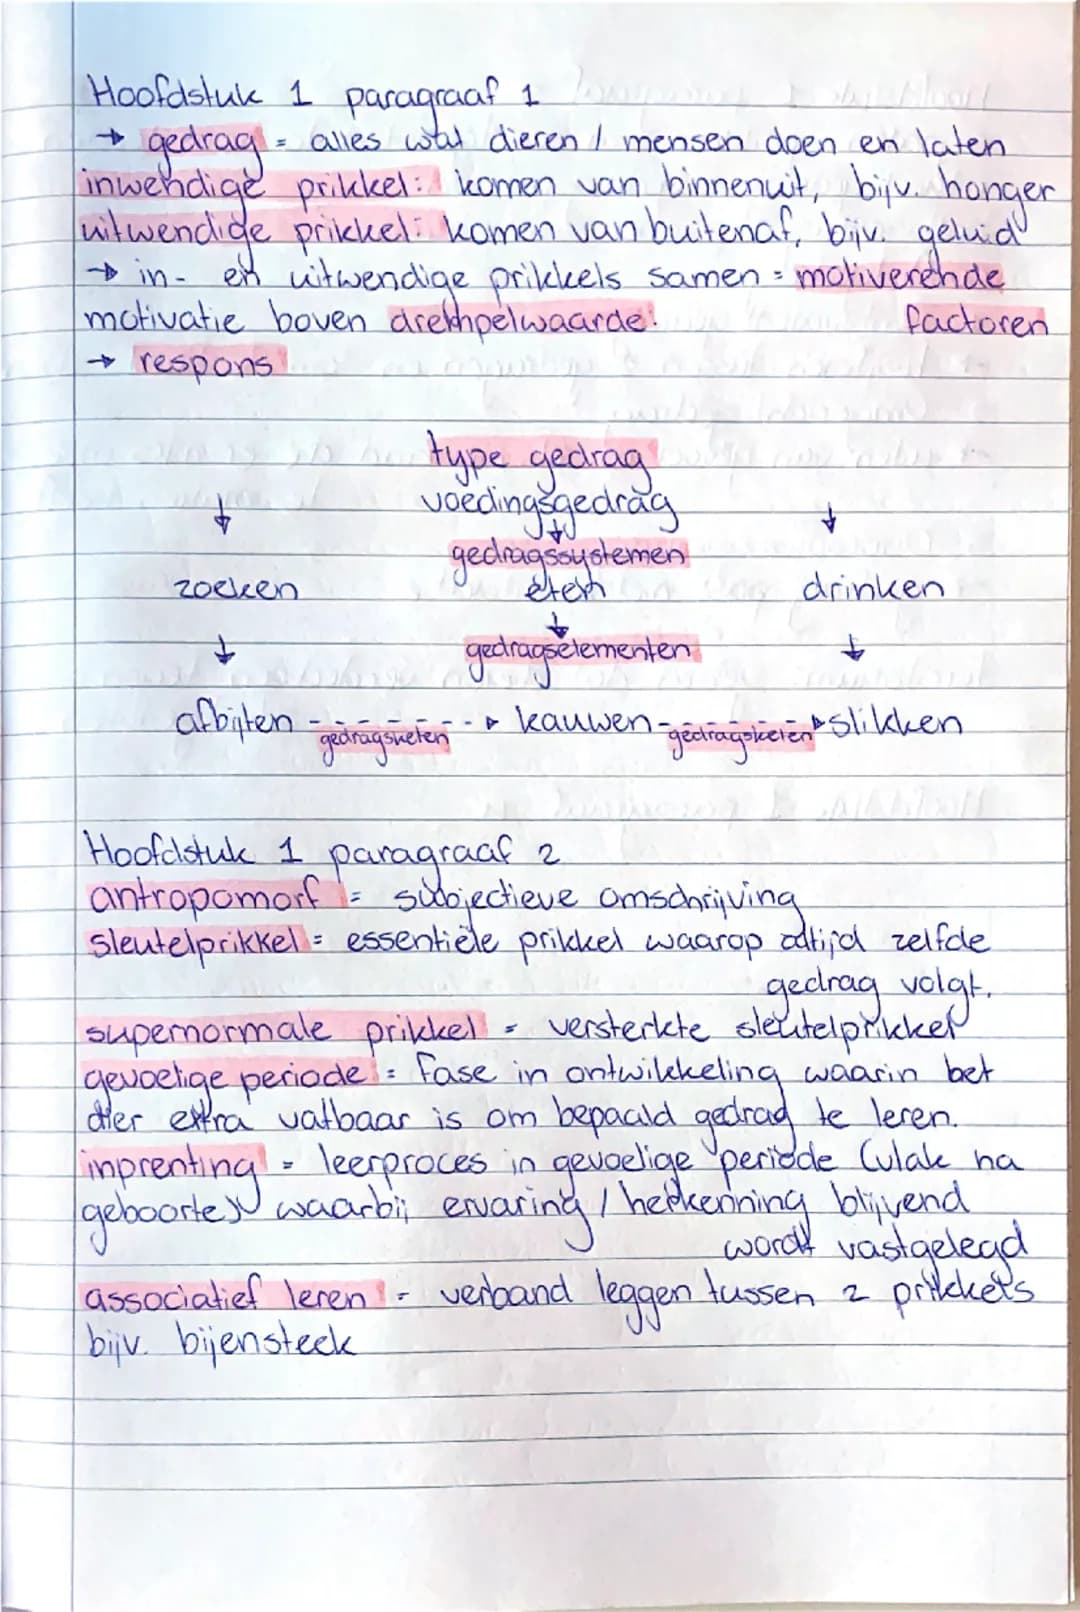 Hoofdstuk 1 paragraaf 1
→ gedrag = alles wat dieren / mensen doen en laten
inwendige prikkel: komen van binnenuit, bijv. honger
uitwendige prikkel: komen van buitenaf, bijv. geluid
→ in- en uitwendige prikkels samen = motiverende
motivatie boven drempelwaarde: factoren
→ respons
type gedrag
voedingsgedrag
↓ ↓ ↓
gedragssystemen
zoeken eten drinken
↓ ↓ ↓
gedragselementen
afbijten ------▸ kauwen ------▸ slikken
gedragsketen gedragsketen
Hoofdstuk 1 paragraaf 2
antropomorf = subjectieve omschrijving
sleutelprikkel = essentiële prikkel waarop altijd zelfde
gedrag volgt.
supernormale prikkel = versterkte sleutelprikkel
gevoelige periode = fase in ontwikkeling waarin het
dier extra vatbaar is om bepaald gedrag te leren.
inprenting = leerproces in gevoelige periode (vlak na
geboorte) waarbij ervaring / herkenning blijvend
wordt vastgelegd
associatief leren = verband leggen tussen 2 prikkels
bijv. bijensteek